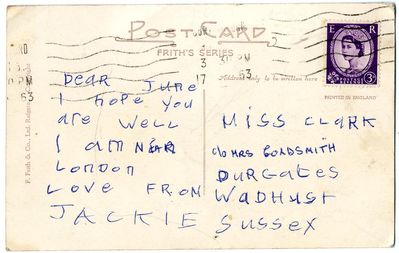 POST CARD
FRITH'S SERIES
E R
3D
Address only to be written here
PRINTED IN ENGLAND
F. Frith & Co., Ltd. Reigate
3
17
63
63
Dear June
I hope you
are well
I am near
London
Love from
JACKIE
Miss Clark
c/o Mrs Goldsmith
Durgates
Wadhurst
Sussex